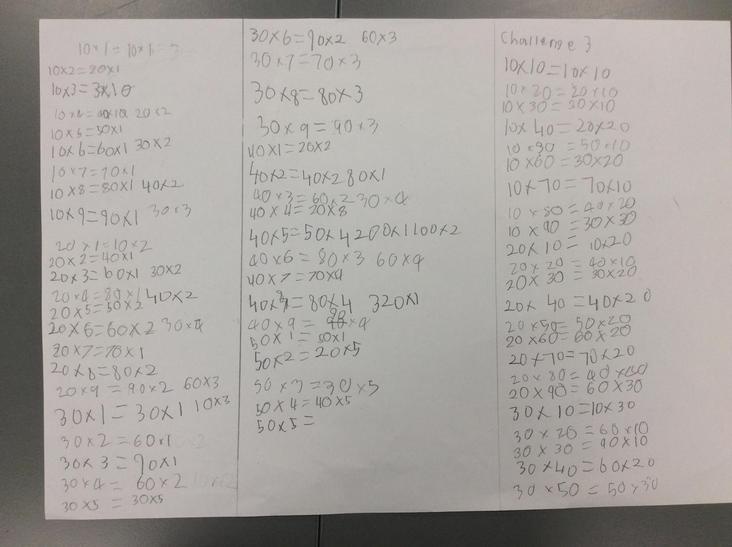 10×1=10×1=3
10×2=20×1
10×3=3×10
10×4=40×10 20×2
10×5=50×1
10×6=60×1 30×2
10×7=70×1
10×8=80×1 40×2
10×9=90×1 30×3
20×1=10×2
20×2=40×1
20×3=60×1 30×2
20×4=80×1 40×2
20×5=50×2
20×6=60×2 30×4
20×7=70×1
20×8=80×2
20×9=90×2 60×3
30×1=30×1 10×3
30×2=60×1
30×3=90×1
30×4=60×2
30×5=30×5
30×6=90×2 60×3
30×7=70×3
30×8=80×3
30×9=90×3
40×1=20×2
40×2=40×2 80×1
40×3=60×2 30×4
40×4=20×8
40×5=50×4 200×1 100×2
40×6=80×3 60×4
40×7=70×4
40×8=80×4 320×1
40×9=90×4
50×1=50×1
50×2=20×5
50×3=30×5
50×4=40×5
50×5=
Challenge 3
10×10=10×10
10×20=20×10
10×30=30×10
10×40=20×20
10×50=50×10
10×60=30×20
10×70=70×10
10×80=40×20
10×90=30×30
20×10=10×20
20×20=40×10
20×30=30×20
20×40=40×20
20×50=50×20
20×60=60×20
20×70=70×20
20×80=40×40
20×90=60×30
30×10=10×30
30×20=60×10
30×30=90×10
30×40=60×20
30×50=50×30